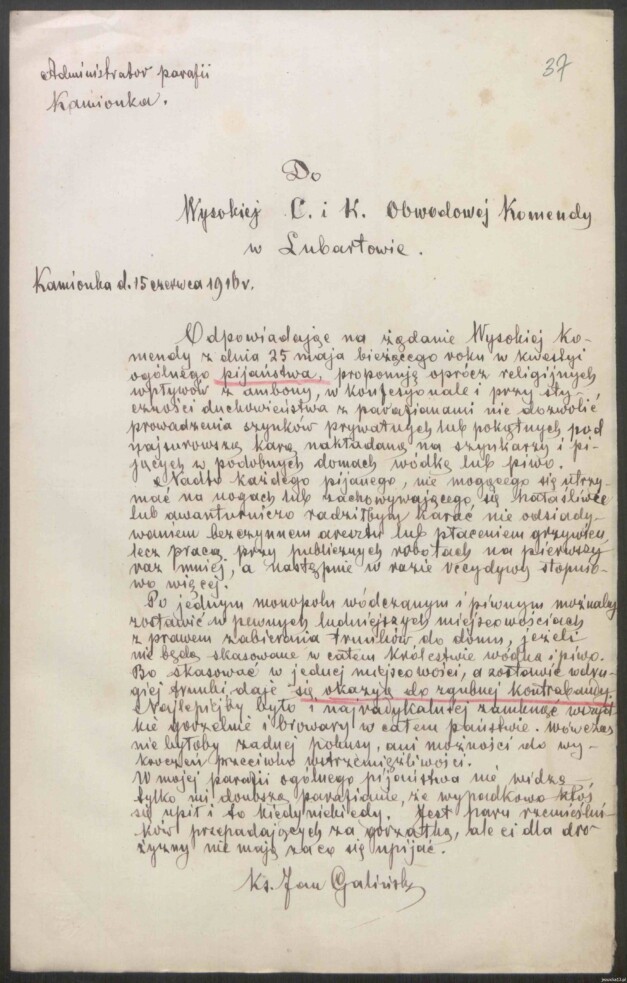 37
Administrator parafii
Kamionka.
Do
Wysokiej C. i K. Obwodowej Komendy
w Lubartowie.
Kamionka d. 15 czerwca 1916 r.
Odpowiadając na żądanie Wysokiej Ko-
mendy z dnia 25 maja bieżącego roku w kwestyi
ogólnego pijaństwa, proponuję oprócz religijnych
wpływów z ambony, w konfesyonale i przy sty-
czności duchowieństwa z parafianami nie dozwolić
prowadzenia szynków prywatnych lub pokątnych, pod
najsurowszą karą nakładaną na szynkarzy i pi-
jących w podobnych domach wódkę lub piwo.
Nadto każdego pijanego, nie mogącego się utrzy-
mać na nogach lub zachowywającego się hałaśliwie
lub awanturniczo radziłbym karać nie odsiady-
waniem bezczynnem aresztu lub płaceniem grzywien,
lecz pracą przy publicznych robotach na pierwszy
raz mniej, a następnie w razie recydywy stopnio-
wo więcej.
Po jednym monopolu wódczanym i piwnym możnaby
zostawić w pewnych ludniejszych miejscowościach
z prawem zabierania trunków do domu, jeżeli
nie będą skasowane w całem królestwie wódka i piwo.
Bo skasować w jednej miejscowości, a zostawić w dru-
giej trunki daje się okazyę do zgubnej kontrabandy.
Najlepiejby było i najradykalniej zamknąć wszyst-
kie gorzelnie i browary w całem państwie. Wówczas
nie byłoby żadnej pokusy, ani możności do wy-
kroczeń przeciwko wstrzemięźliwości.
W mojej parafii ogólnego pijaństwa nie widzę
tylko mi donoszą parafianie, że wypadkowo ktoś
się upił i to kiedyniekiedy. Jest paru rzemieślni-
ków przepadających za gorzałką, ale ci dla dro-
żyzny nie mają za co się upijać.
Ks. Jan Galiński